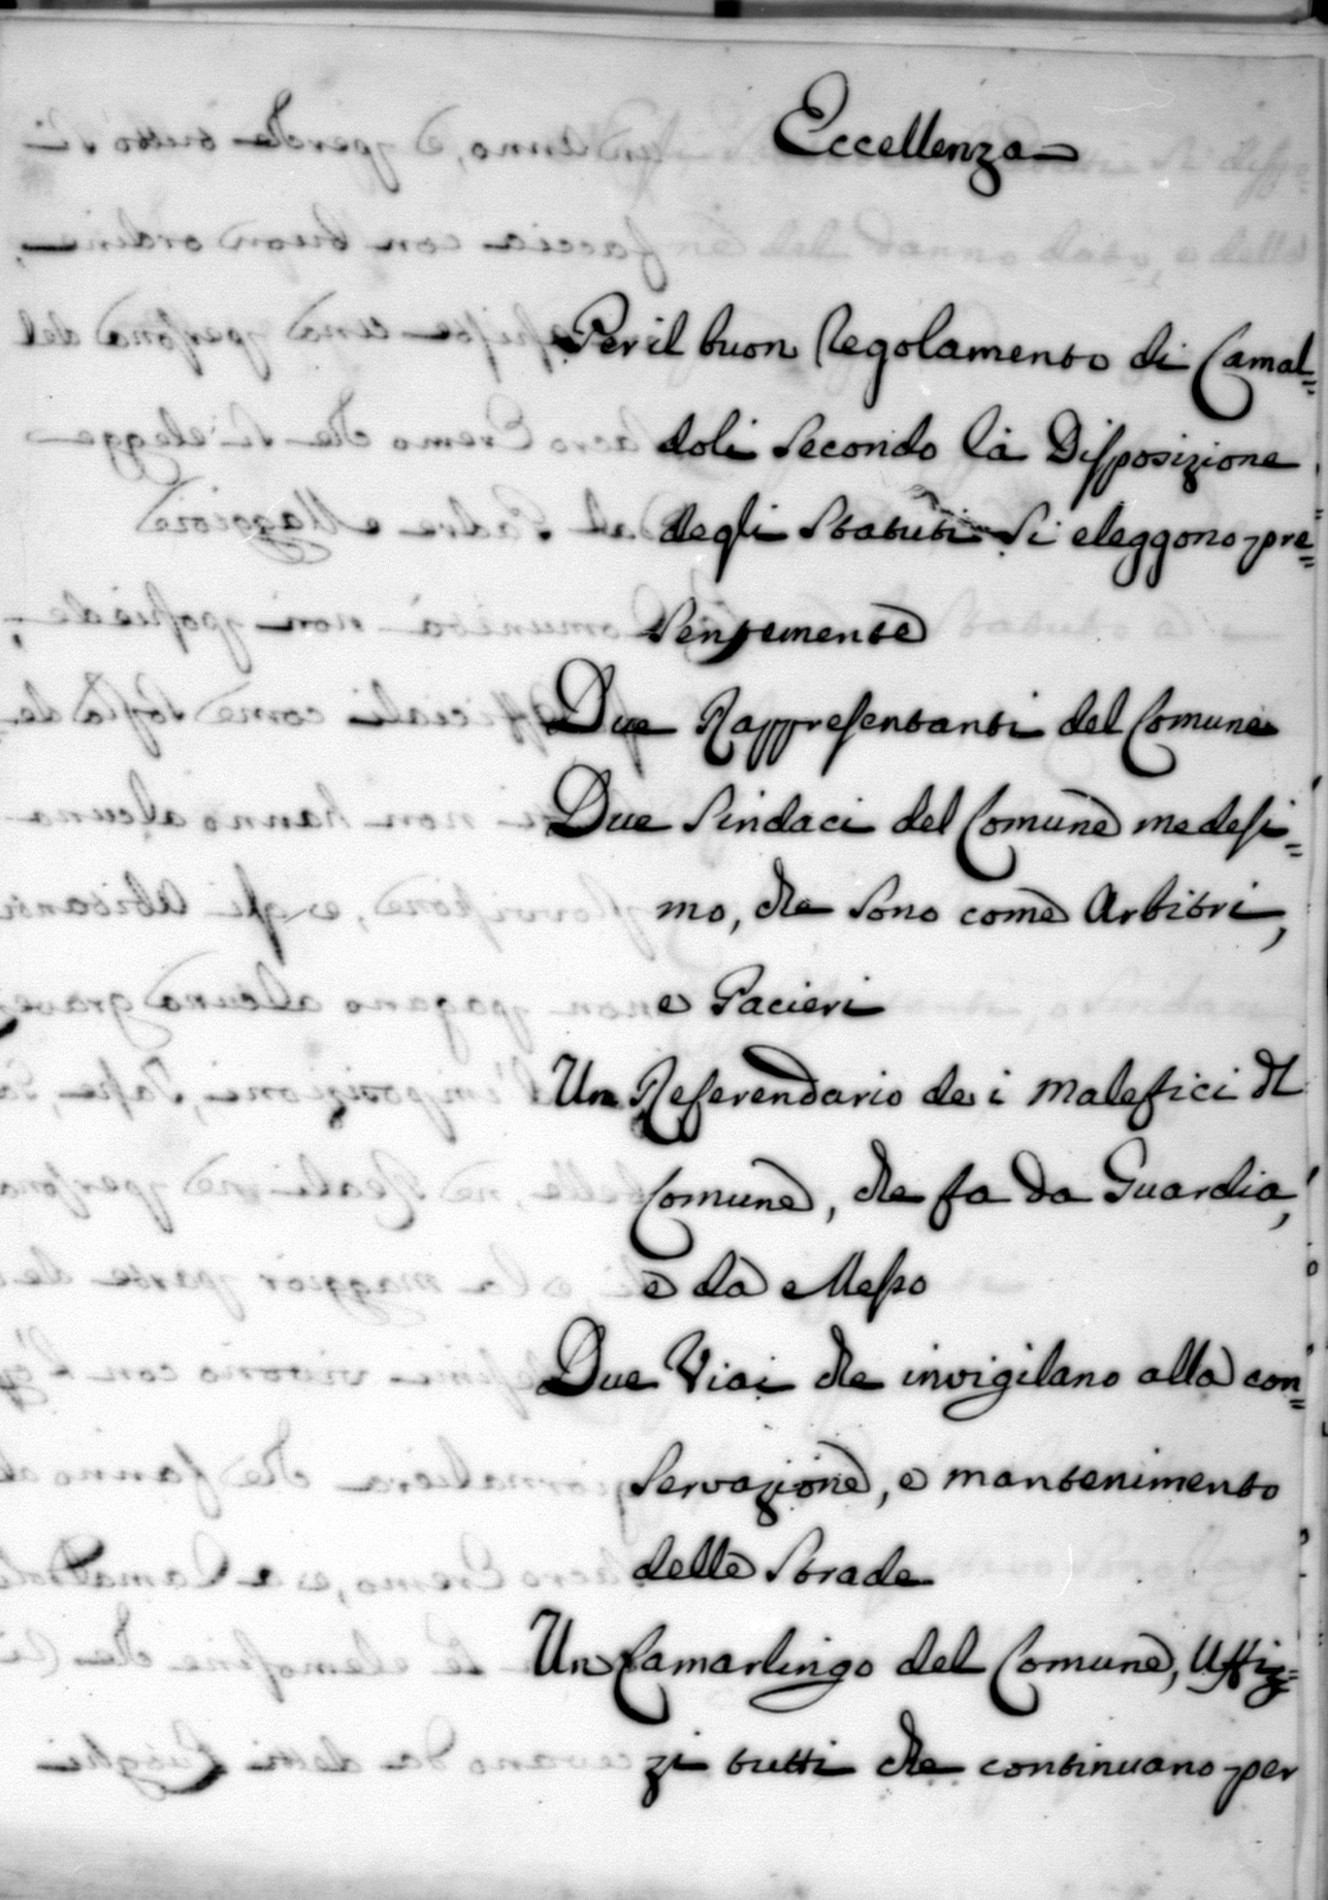 Eccellenza
Per il buon Regolamento di Camal=
doli secondo la Disposizione
degli Statuti si eleggono pre=
sentemente
Due Rappresentanti del Comune
Due Sindaci del Comune medesi=
mo, che sono come Arbitri,
e Pacieri
Un Referendario de i malefici del
Comune, che fa da Guardia,
e da Messo
Due Viai che invigilano alla con=
servazione, e mantenimento
delle Strade
Un Camarlingo del Comune, Uffiz=
zi tutti che continuano per